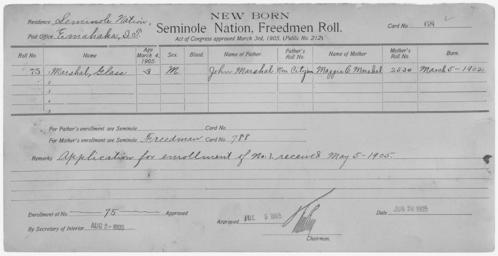 NEW BORN
Residence: Seminole Nation,
Seminole Nation, Freedmen Roll.
Card No. 68
Post Office: Emahaka, I.T.
Act of Congress approved March 3rd, 1905, (Public No. 212).
Roll No. Name Age March 4, 1905. Sex. Blood. Name of Father Father's Roll No. Name of Mother Mother's Roll No. Born.
75 Marshal, Glass 3 M John Marshal Non Citizen Maggie Marshal March 5-1902
For Father's enrollment see Seminole Card No.
For Mother's enrollment see Seminole Freedman Card No. 788
Remarks: Application for enrollment of No. 1 received May 5-1905.
Enrollment of No. 75 Approved
Approved 1905
Date 1905
By Secretary of Interior AUG 1905
Chairman.